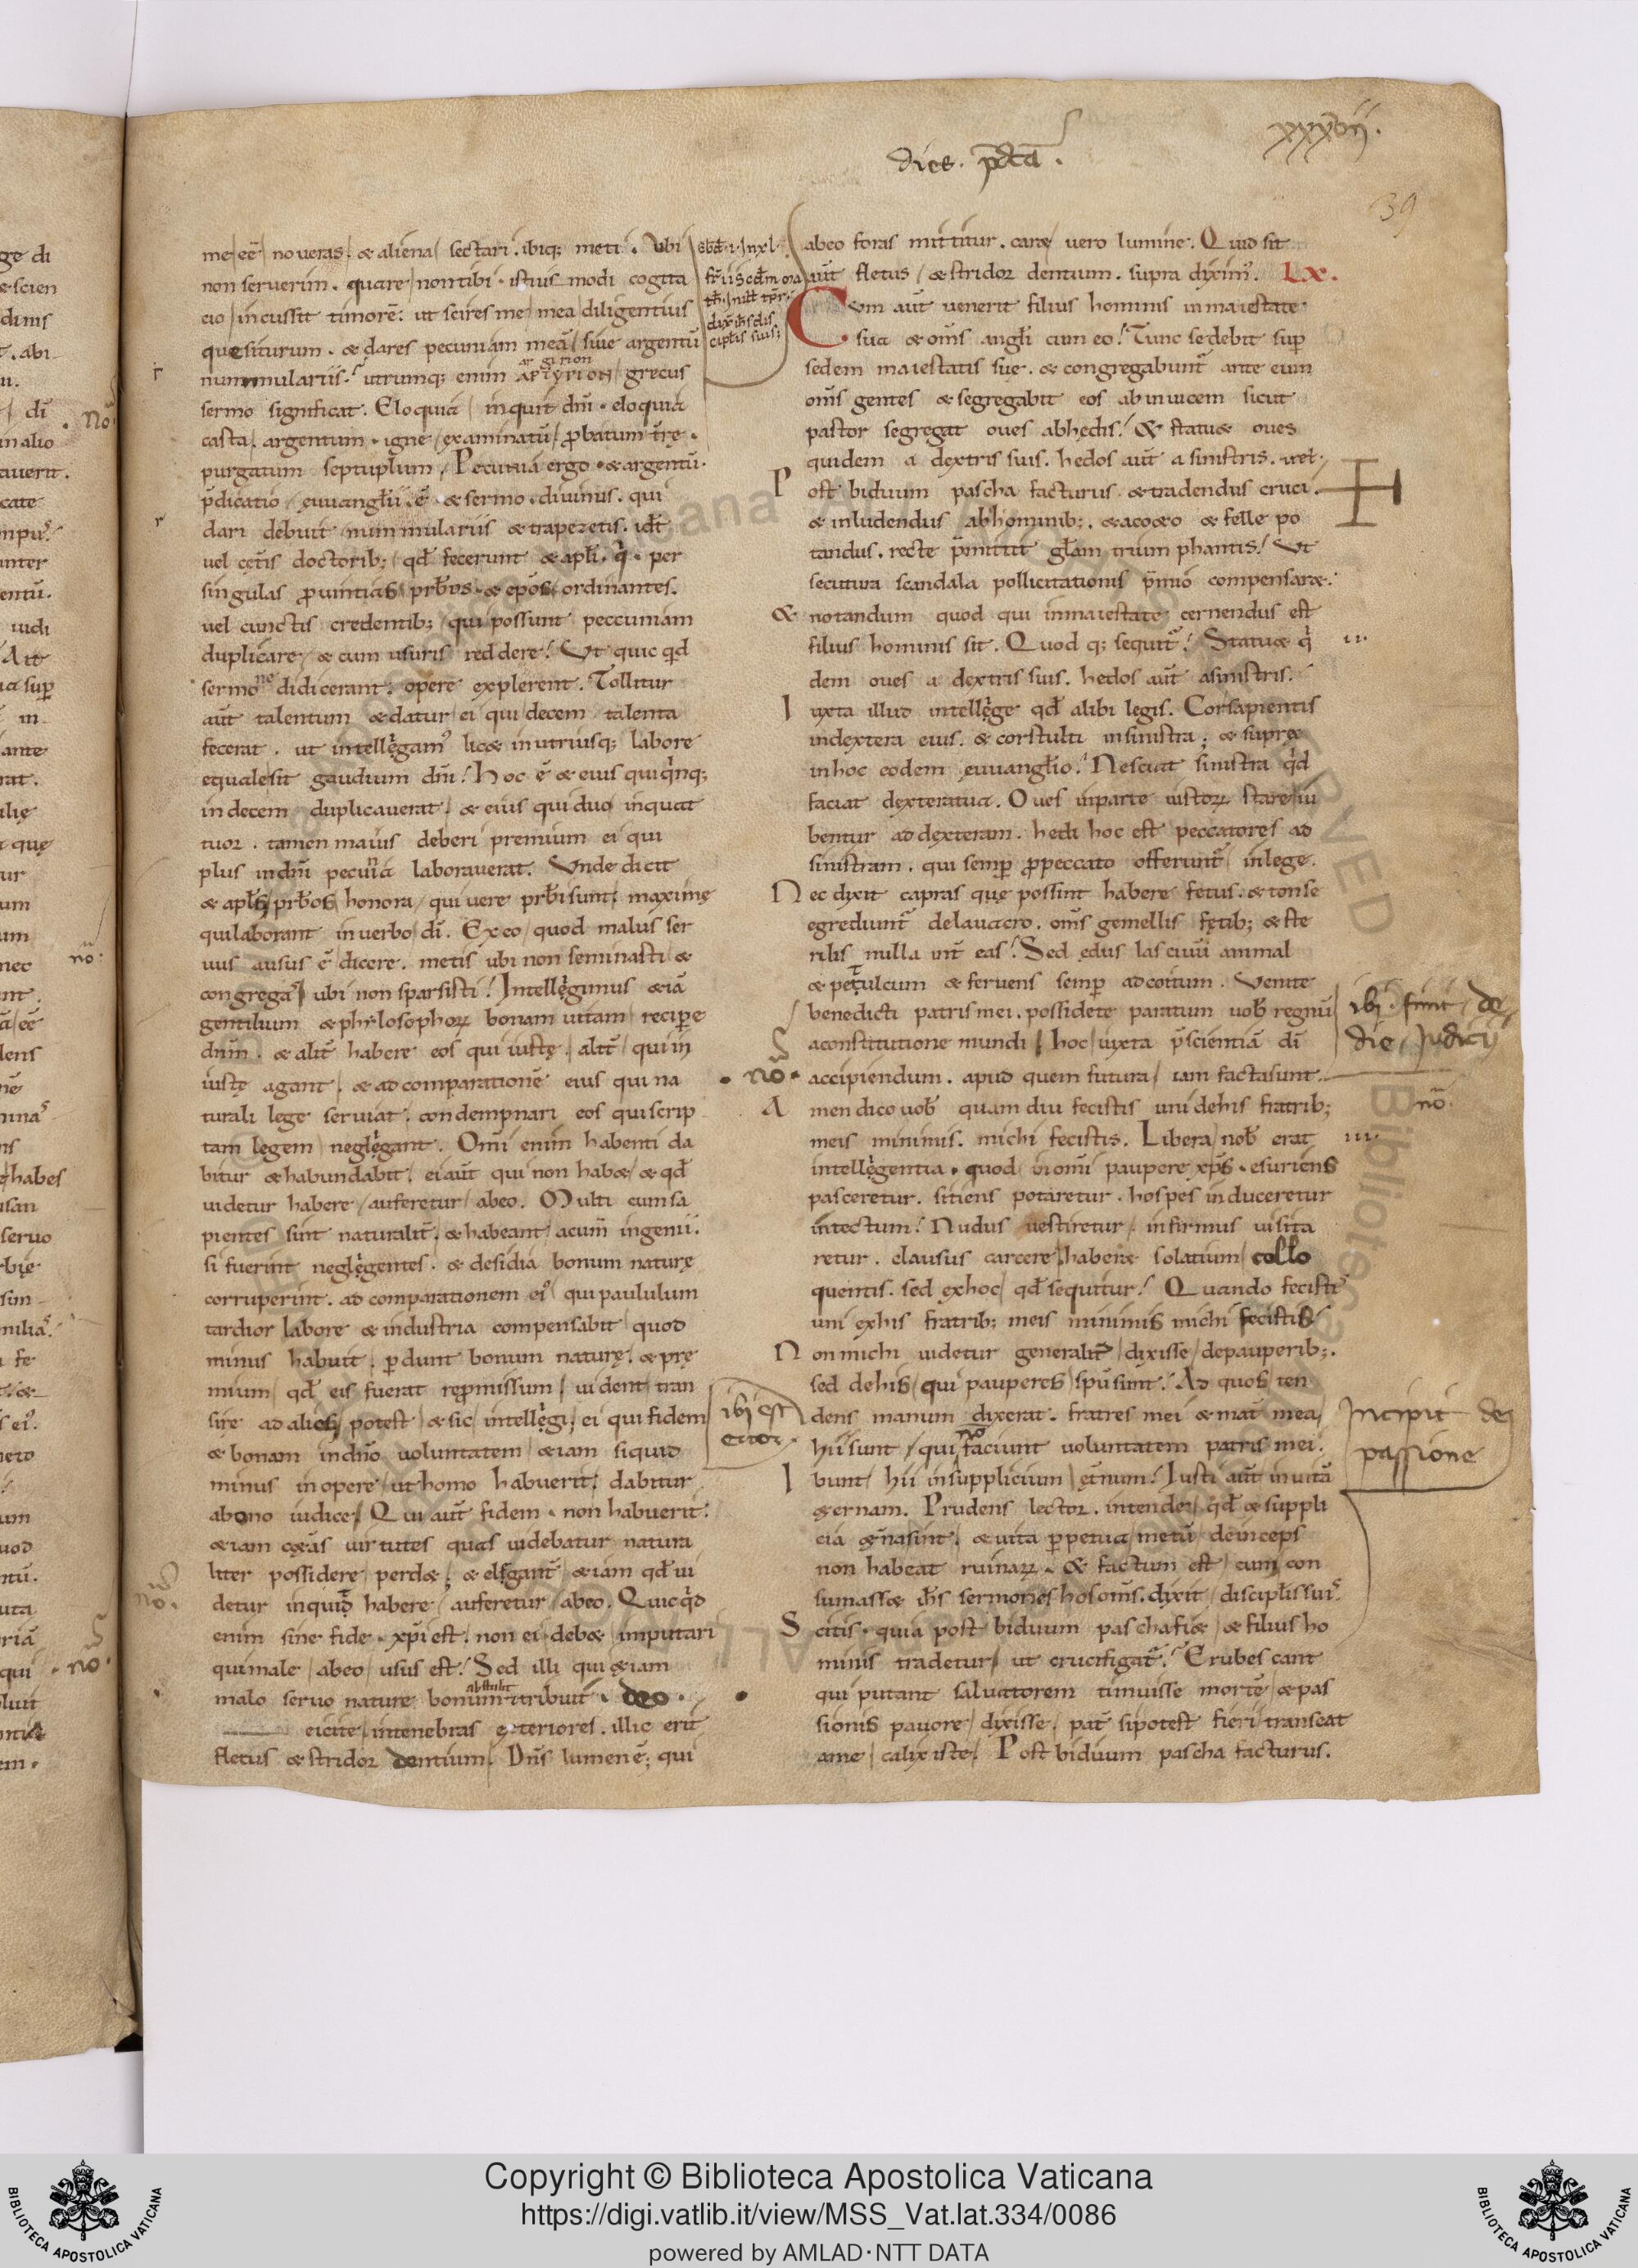 dies. p̄dc̄a.
xxxvii.
39
me eē noveras. & aliena sectari. ibiq; meti. Ubi
non serverim. quare non tibi. istius modi cogita
cio incussit timorē. ut scires me mea diligentius
quesiturum. & dares pecuniam meā sive argentū
nummulariis. utrumq; enim ἀργύριον grecus
argirion
sermo significat. Eloquia inquit dñi. eloquia
casta. argentum. igne examinatū probatum t̄rę.
purgatum septuplum. Pecuniā ergo. & argentū.
p̄dicatio euuangłii. ē. & sermo. divinus. qui
dari debuit nummulariis & trapezetis. idē
vel cęt̄is doctorib; qđ fecerunt & apłi. qͥ. per
singulas provintias prb̄ros. & ep̄os ordinantes.
vel cunctis credentib; qui possunt peccuniam
duplicare & cum usuris reddere. Ut quicqd
sermone didicerant. opere explerent. Tollitur
aūt talentum & datur ei qui decem talenta
fecerat. ut intellęgam⁹ lic& in utriusq; labore
equale sit gaudium dñi. Hoc ē & eius qui qͥnq;
in decem duplicaverat. & eius qui duo in quat
tuor. tamen maius deberi premium ei qui
plus in dñi pecunia laboraverat. Unde dicit
& apłs prb̄os honora qui vere prb̄i sunt. maximę
qui laborant in verbo dī. Ex eo quod malus ser
vus ausus ē dicere. metis ubi non seminasti &
congregas ubi non sparsisti. Intellęgimus & iā
gentilium & phylosophoꝝ bonam vitam recipe
dnm. & alit̄ habere eos qui iustę. alit̄ qui in
iustę agant. & ad comparationē eius qui na
turali lege serviat. condempnari eos qui scrip
tam legem neglęgant. Omi enim habenti da
bitur & habundabit. ei aūt qui non hab& & qđ
videtur habere auferetur ab eo. Multi cum sa
pientes sint naturalit̄. & habeant acum̄ ingenii.
si fuerint neglęgentes. & desidia bonum naturę
corruperint. ad comparationem ei⁹ qui paululum
tardior labore & industria compensabit quod
minus habuit. perdunt bonum naturę. & prę
mium qđ eis fuerat repromissum vident tran
sire ad alios potest & sic intellęgi. ei qui fidem
& bonam in dño voluntatem & iam si quid
minus in opere ut homo habuerit. dabitur
a bono iudice. Qui aūt fidem. non habuerit.
& iam c&as virtutes quas videbatur natura
liter possidere perd&. & elegant̄ & iam qđ vi
detur inquid habere auferetur ab eo. Quicqͥd
enim sine fide. xp̄i est. non ei deb& imputari
qui male abeo usus est. Sed illi qui & iam
abstulit
malo servo nature bonum tribuit. deo.
eicite in tenebras exteriores. illic erit
fletus & stridor dentium. Dn̄s lumen ē. qui
ibi est
error.
ab eo foras mittitur. car& vero lumine. Quid sit
aūt fletus & stridor dentium. supra diximꝰ. LX.
Cum aūt venerit filius hominis in maiestate
sua & om̄s angłi cum eo. Tunc sedebit sup
sedem maiestatis suę. & congregabunt̄ ante eum
om̄s gentes & segregabit eos ab invicem sicut
pastor segregat oves ab hedis. & statu& oves
quidem a dextris suis. hedos aūt a sinistris.
Post biduum pascha facturus. & tradendus cruci.
& inludendus ab hominib;. & aceto & felle po
tandus. recte p̄mittit głam trium phantis. Ut
secutura scandala pollicitationis p̄mio compensar&.
& notandum quod qui in maiestate cernendus est
filius hominis sit. Quod q; sequit̄. Statu& qͥ
dem oves a dextris suis. hedos aūt a sinistris.
Iuxta illud intellęge qđ alibi legis. Cor sapientis
in dextera eius. & cor stulti in sinistra. & supra
in hoc eodem euuangłio. Nesciat sinistra qͥd
faciat dextera tua. Oves in parte iustoꝝ stare iu
bentur ad dexteram. hedi hoc est peccatores ad
sinistram. qui semp pro peccato offerunt̄ in lege.
Nec dixit capras quę possint habere fetus. & tonse
egrediunt̄ de lavacro. om̄s gemellis fętib; & ste
rilis nulla int̄ eas. Sed ędus lascivū animal
& petulcum & fervens semp ad coitum. Venite
benedicti patris mei. possidete paratum vob regnū
a constitutione mundi. hoc iuxta p̄scientiā dī
accipiendum. apud quem futura iam facta sunt.
Amen dico vob quam diu fecistis uni de his fratrib;
meis minimis. michi fecistis. Libera nob erat
intellęgentia. quod in omī paupere xp̄s. esuriens
pasceretur. sitiens potaretur. hospes induceretur
in tectum. Nudus vestiretur. infirmus visita
retur. clausus carcere haber& solatium collo
quentis. sed ex hoc qđ sequitur. Quando fecistis
uni ex his fratrib; meis minimis michi fecistis
Non michi videtur generalit̄ dixisse de pauperib;.
sed de his qui pauperes spū sunt. Ad quos ten
dens manum dixerat. fratres mei & mat̄ mea
hii sunt qui faciunt voluntatem patris mei.
Ibunt hii in supplicium et̄num. Iusti aūt in vitā
&ernam. Prudens lector. intende qđ & suppli
cia et̄na sint. & vita perpetua metū deinceps
non habeat ruinaꝝ. & factum est cum con
sumass& ih̄s sermones hos om̄s. dixit discipłis suis.
Scitis. quia post biduum pascha fi& & filius ho
minis tradetur ut crucifigat̄. Erubescant
qui putant salvatorem timuisse mortē & pas
sionis pavore dixisse. pat̄ si potest fieri transeat
a me calix iste. Post biduum pascha facturus.
ibi finit de
die Judicij
nō.
Incipit de
passione
Copyright © Biblioteca Apostolica Vaticana
https://digi.vatlib.it/view/MSS_Vat.lat.334/0086
powered by AMLAD·NTT DATA
BIBLIOTECA APOSTOLICA VATICANA
BIBLIOTECA APOSTOLICA VATICANA